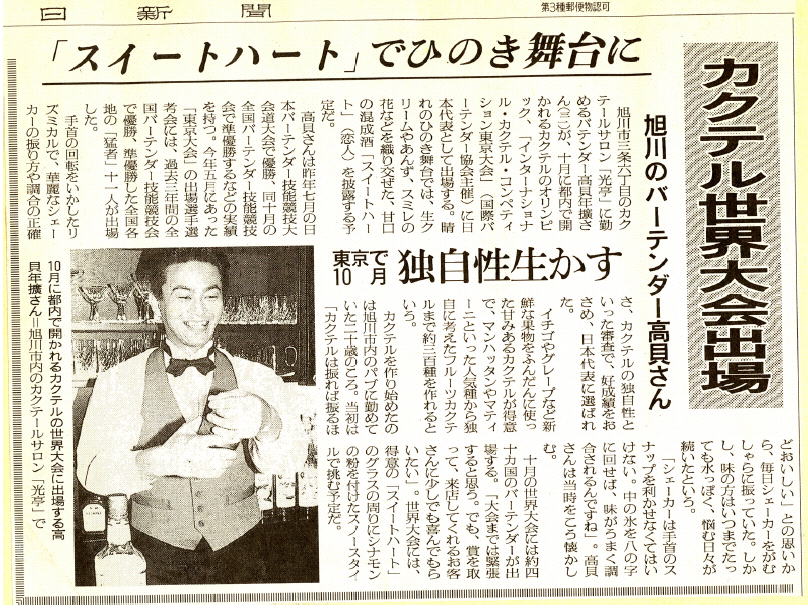 日新聞
第3種郵便物認可
「スイートハート」でひのき舞台に
カクテル世界大会出場
旭川のバーテンダー高貝さん
東京で
10月
独自性生かす
旭川市三条六丁目のカク
テールサロン「光亭」に勤
めるバーテンダー高貝年擴さ
んが、十月に都内で開
かれるカクテルのオリンピ
ック、「インターナショナ
ル・カクテル・コンペティ
ション東京大会」（国際バ
ーテンダー協会主催）に日
本代表として出場する。晴
れのひのき舞台では、生ク
リームやあんず、スミレの
花などを織り交ぜた、甘口
の混成酒「スイートハー
ト」（恋人）を披露する予
定だ。
高貝さんは昨年七月の日
本バーテンダー技能競技大
会道大会で優勝、同十月の
全国バーテンダー技能競技
会で準優勝するなどの実績
を持つ。今年五月にあった
「東京大会」の出場選手選
考会には、過去三年間の全
国バーテンダー技能競技会
で優勝、準優勝した全国各
地の「猛者」十一人が出場
した。
手首の回転をいかしたリ
ズミカルで、華麗なシェー
カーの振り方や調合の正確
さ、カクテルの独自性と
いった審査で、好成績をお
さめ、日本代表に選ばれ
た。
イチゴやグレープなど新
鮮な果物をふんだんに使っ
た甘みあるカクテルが得意
で、マンハッタンやマティ
ーニといった人気種から独
自に考えたフルーツカクテ
ルまで約三百種を作れると
いう。
カクテルを作り始めたの
は旭川市内のパブに勤めて
いた二十歳のころ。当初は
「カクテルは振れば振るほ
どおいしい」との思いか
ら、毎日シェーカーをがむ
しゃらに振っていた。しか
し、味の方はいつまでたっ
ても水っぽく、悩む日々が
続いたという。
「シェーカーは手首のス
ナップを利かせなくてはい
けない。中の氷を八の字
に回せば、味がうまく調
合されるんですね」。高貝
さんは当時をこう懐かし
む。
十月の世界大会には約四
十カ国のバーテンダーが出
場する。「大会までは緊張
すると思う。でも、賞を取
って、来店してくれるお客
さんに少しでも喜んでもら
いたい」。世界大会には、
得意の「スイートハート」
のグラスの周りにシナモン
の粉を付けたスノースタイ
ルで挑む予定だ。
10月に都内で開かれるカクテルの世界大会に出場する高
貝年擴さん＝旭川市内のカクテールサロン「光亭」で